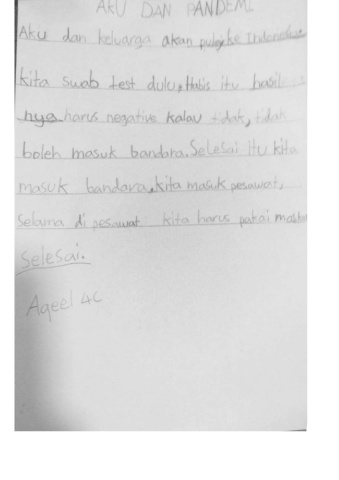 AKU DAN PANDEMI
Aku dan keluarga akan pulang ke Indonesia
kita swab test dulu, Habis itu hasil
nya harus negative kalau tidak, tidak
boleh masuk bandara. Selesai itu kita
masuk bandara, kita masuk pesawat,
Selama di pesawat kita harus pakai masker
Selesai.
Aqeel 4C